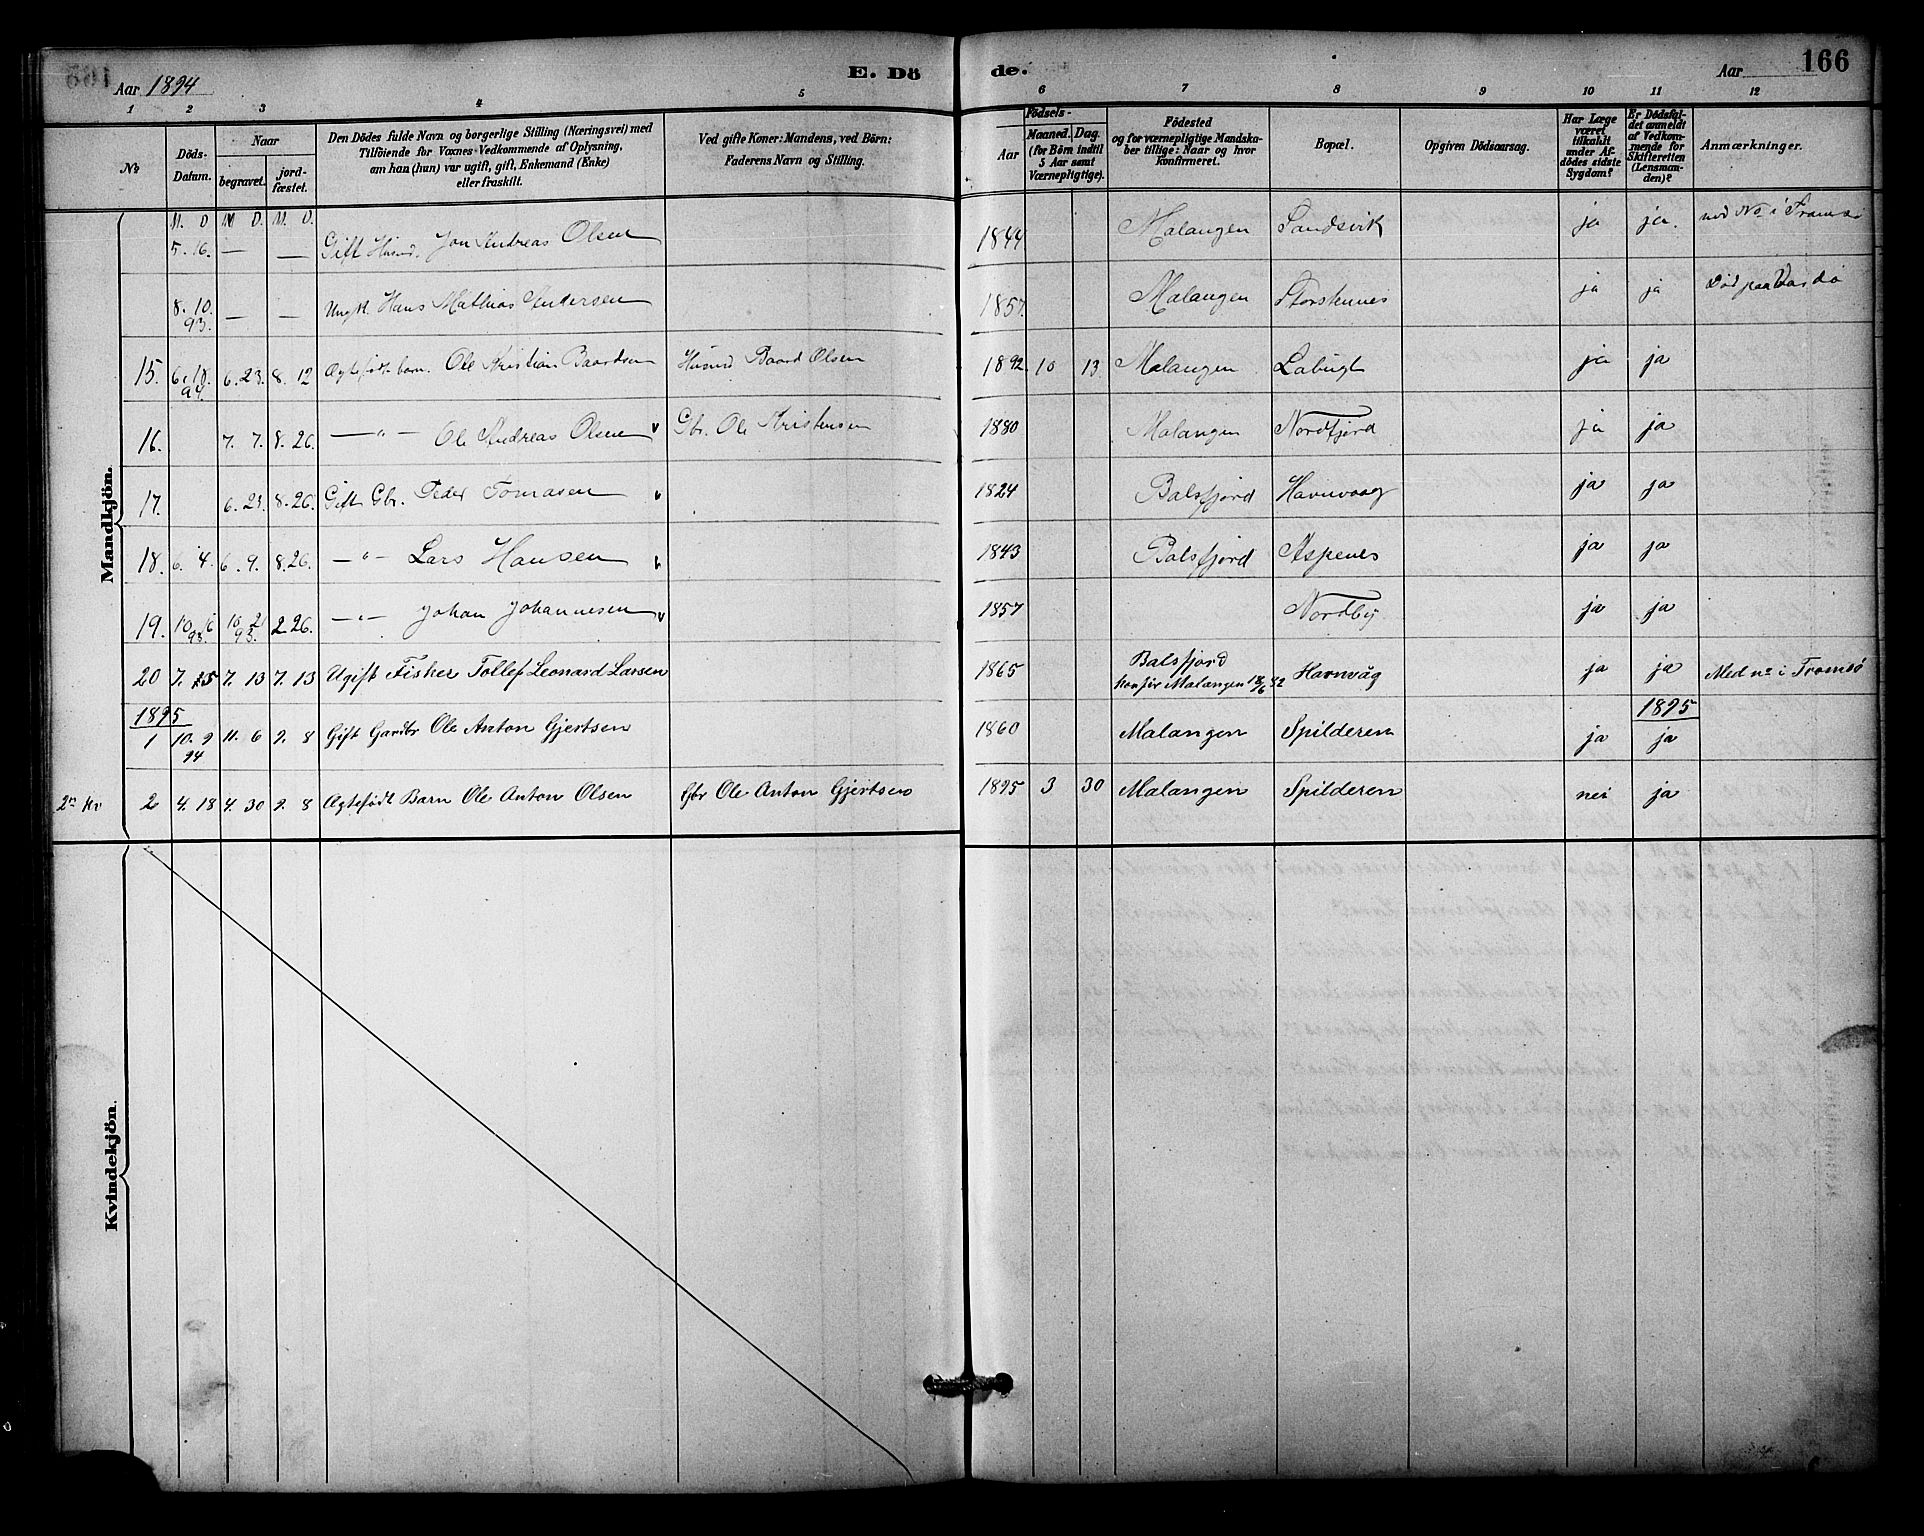 Aar 1894 E. Dö de. Aar 166
1 2 3 4 5 6 7 8 9 10 11 12
No
Döds-
Datum.
Naar
begravet.
jord-
fæstet.
Den Dödes fulde Navn og borgerlige Stilling (Næringsvei) med
Tilföiende for Voxnes Vedkommende af Oplysning,
om han (hun) var ugift, gift, Enkemand (Enke)
eller fraskilt.
Ved gifte Koner: Mandens, ved Börn:
Faderens Navn og Stilling.
Födsels-
Aar
Maaned. Dag.
(for Börn indtil
5 Aar samt
Værnepligtige).
Födested
og for værnepligtige Mandska-
ber tillige: Naar og hvor
konfirmeret.
Bopæl.
Opgiven Dödsaarsag.
Har Læge
været
tilkaldt
under Af-
dödes sidste
Sygdom?
Er Dödsfal-
det anmeldt
af Vedkom-
mende for
Skifteretten
(Lensman-
den)?
Anmærkninger.
Mandkjön.
M. D. M. D. M. D.
5. 16. — — Gift Husmd. Jon Andreas Olsen 1844 Malangen Sandsvik ja ja. med No i Tromsø
8. 10. 93. — — Ungk. Hans Mathias Andersen 1857 Malangen Storstennes ja ja Død paa Vardø
15. 6. 18. 94. 6. 23. 8. 12 Ægtefødt barn. Ole Kristian Baardsen Husmd Baard Olsen 1892 10 13 Malangen Labugt ja ja
16. 7. 7. 8. 26. —"— Ole Andreas Olsen Gbr. Ole Kristensen 1880 Malangen Nordfjord ja ja
17. 6. 23. 8. 26. Gift Gbr. Peder Tomasen 1824 Balsfjord Havnvaag ja ja
18. 6. 4. 6. 9. 8. 26. —"— Lars Hansen 1843 Balsfjord Aspenes ja ja
19. 10 16 93. 10. 21 93. 2 26. —"— Johan Johannesen 1857 Nordby ja ja
20 7. 15 7. 13 7. 13 Ugift Fisker Tollef Leonard Larsen 1865 Balsfjord Havnvåg ja ja Med no i Tromsö
konfir Malangen 18/6 82
1895 1895
1 10. 9 94 11. 6 9. 8 Gift Gardbr Ole Anton Gjertsen 1860 Malangen Spilderen ja ja
2 4. 18 4. 30 9. 8 Ægtefødt Barn Ole Anton Olsen Gbr Ole Anton Gjertsen 1895 3 30 Malangen Spilderen nei ja
Kvindekjön.